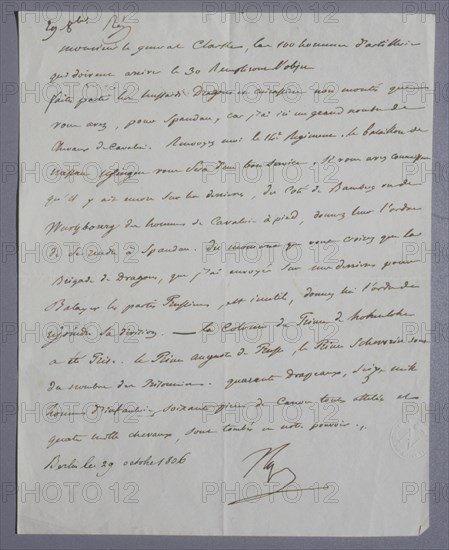 29 8bre
Monsieur le général Clarke, les 100 hommes d'artillerie
qui doivent arriver le 30 Rempliront l'objet
faites partir les hussards Dragons et cuirassiers non montés que
vous avez, pour Spandau, car j'ai ici un grand nombre de
Chevaux de Cavalerie. Renvoyez moi le 14e Regiment. le bataillon de
Nassau vous Sera d'un bon Service. Si vous avez connaissance
qu'il y ait encore Sur les derrieres, du Coté de Bamberg ou de
Wurzbourg des hommes de Cavalerie à pied, donnez leur l'ordre
de se rendre à Spandau. Du moment que vous croirez que la
Brigade de dragons, que j'ai envoyée Sur mes derrieres pour
Balayer les partis Prussiens, est inutile, donnez lui l'ordre de
rejoindre sa division. — la Colonne du Prince de hohenlohe
a été Prise. le Prince auguste de Prusse, le Prince Schwerin sont
du nombre des Prisonniers. quarante drapeaux, Seize mille
hommes d'infanterie, soixante pieces de Canon toutes attelées et
quatre mille chevaux, sont tombés en notre pouvoir.
Berlin le 29 octobre 1806
Np
PHOTO12